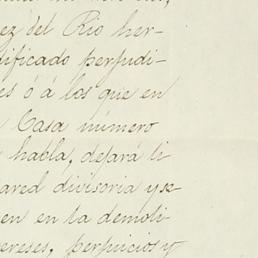 ez del Rio her-
dificado perjudi-
es ó á los que en
Casa número
habla, dejará li
ared divisoria y se
en en la demoli
ereses, perjuicios y